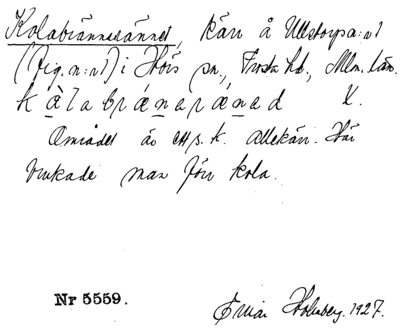 Kolabrännerännet, kärr å Ullstorps: nº 1
(fig. n: r 1) i Hörs sn., Frosta hd., Mlm. län.
k à l a b r ǽ n a r ǽ n e d K.
Området är ett s. k. allekärr. Här
brukade man förr kola.
Nr 5559.
Holmberg. 1927.